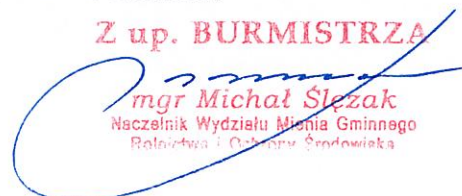 Z up. BURMISTRZA
mgr Michał Ślęzak
Naczelnik Wydziału Mienia Gminnego
Rolnictwa i Ochrony Środowiska